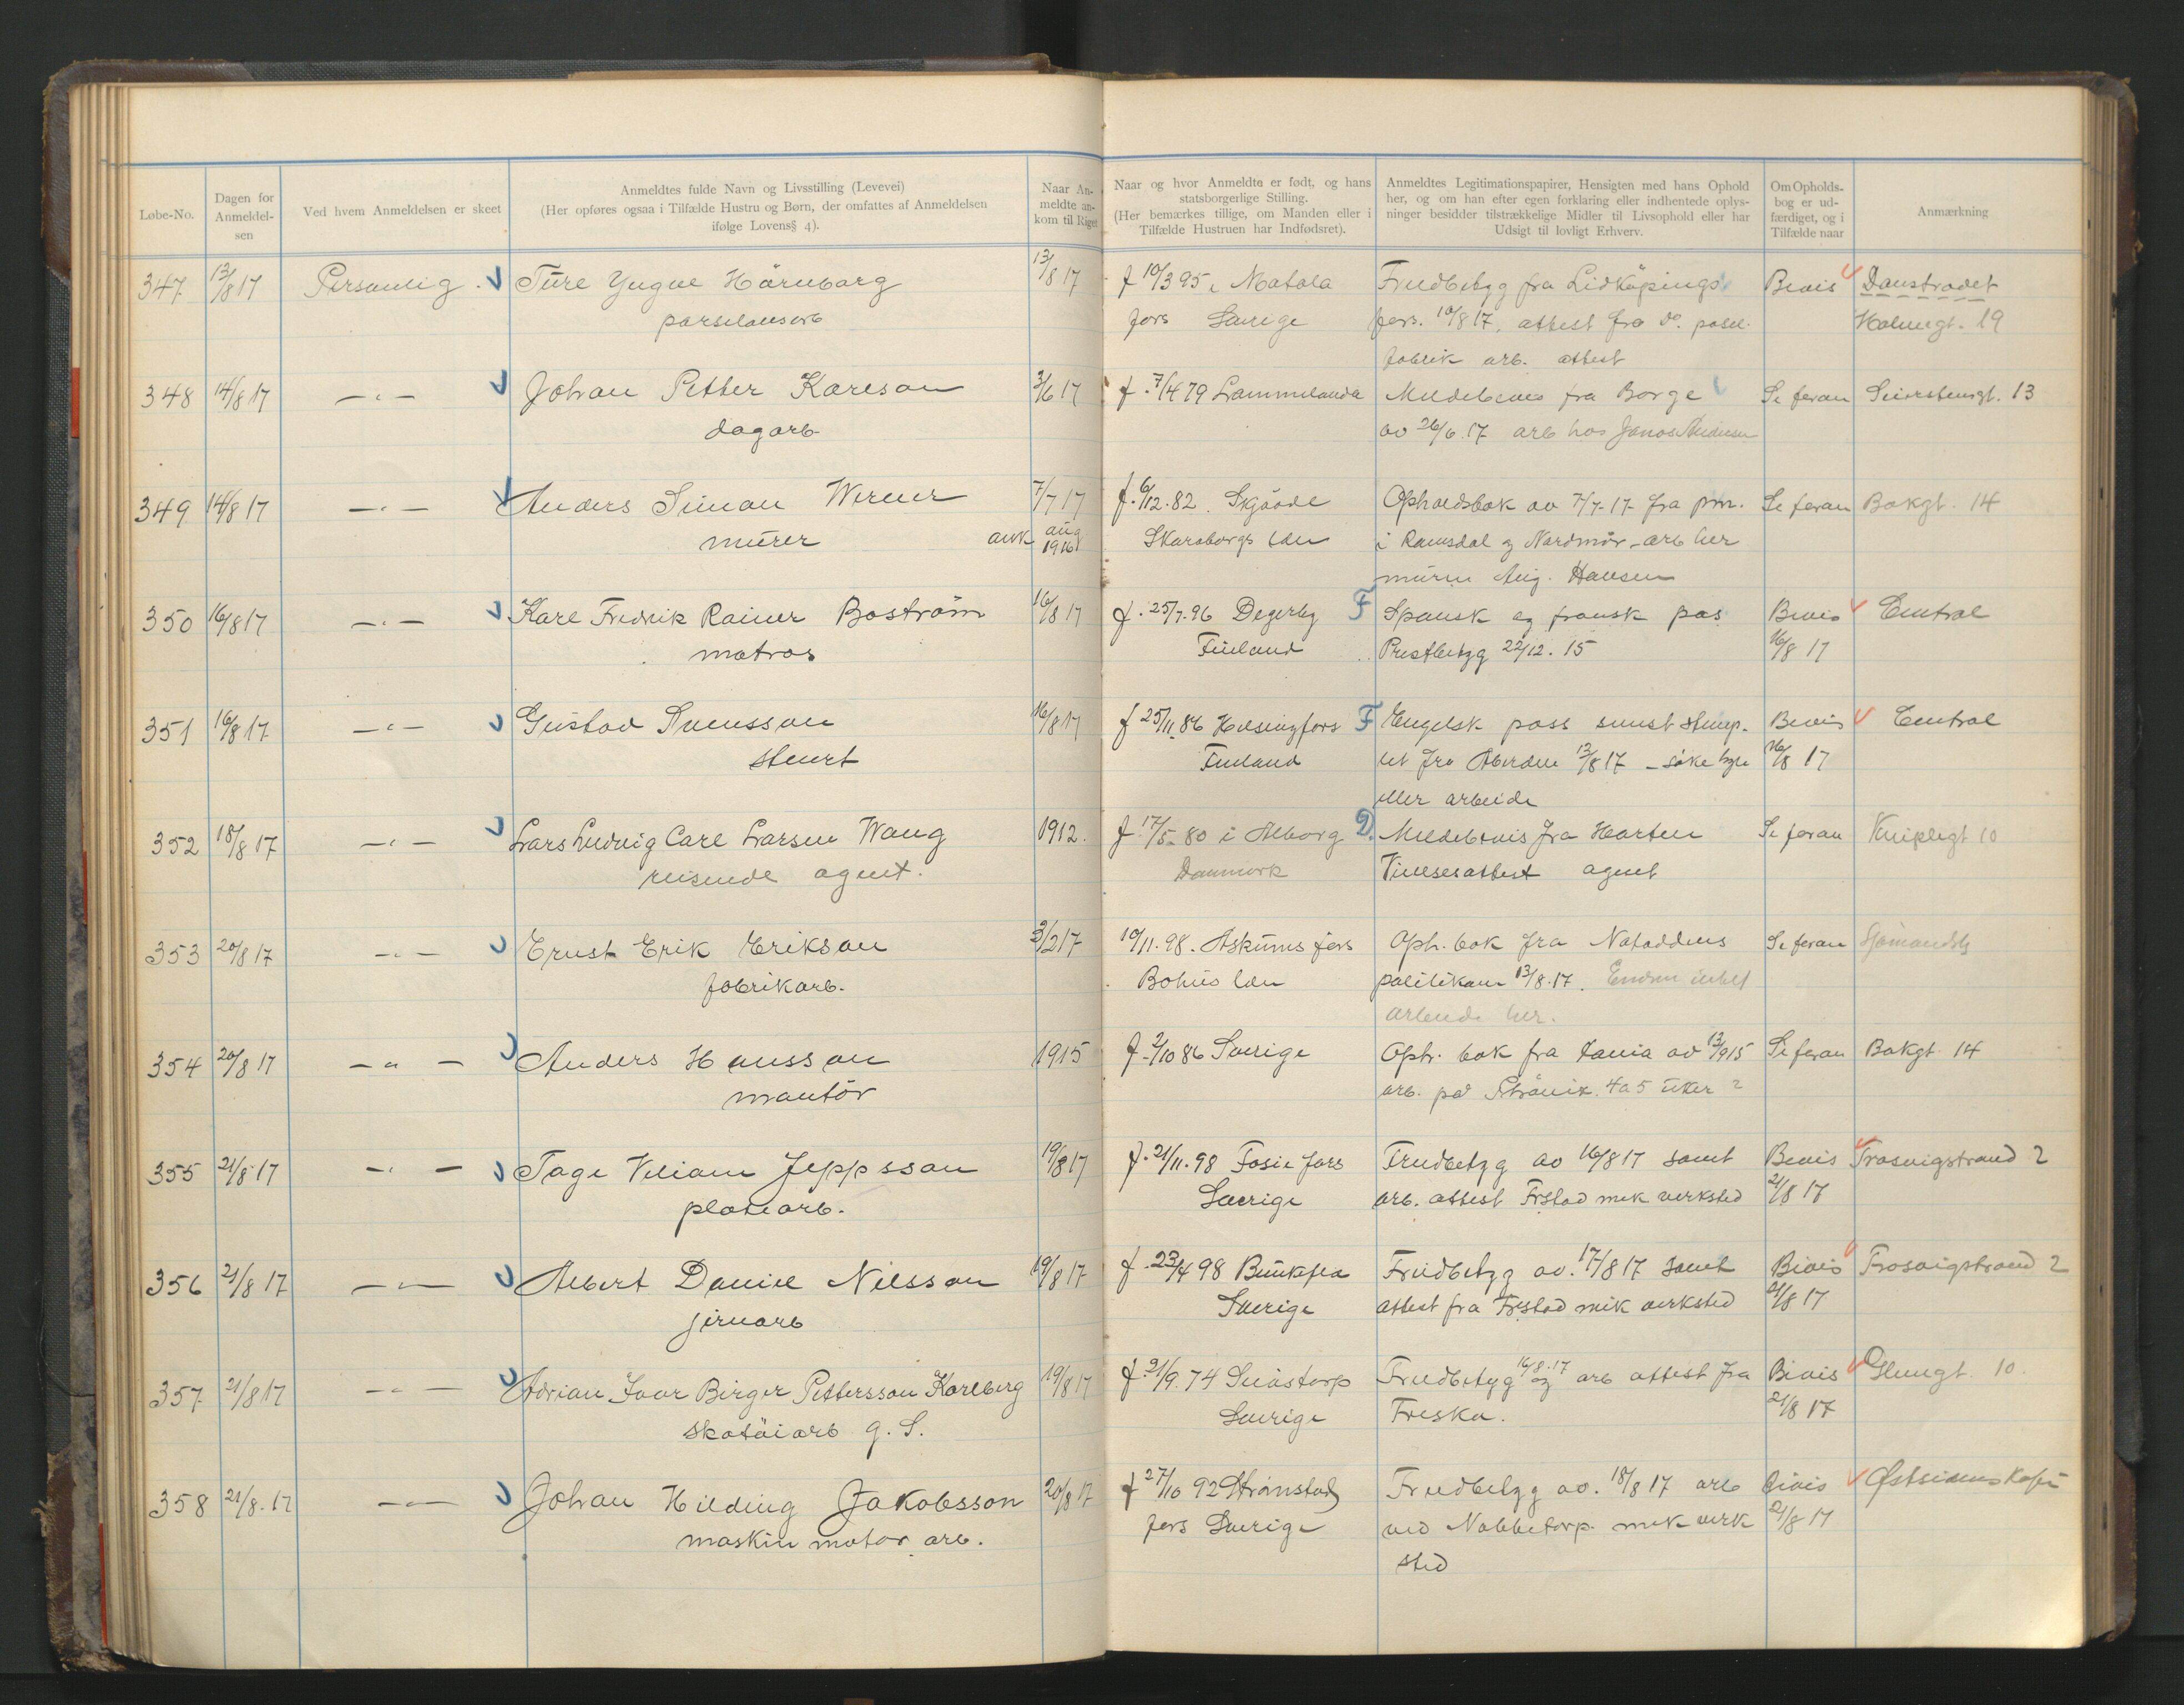 Løbe-No.
Dagen for Anmeldel-sen
Ved hvem Anmeldelsen er skeet
Anmeldtes fulde Navn og Livsstilling (Levevei)
(Her opføres ogsaa i Tilfælde Hustru og Børn, der omfattes af Anmeldelsen
ifølge Lovens§ 4).
Naar An-
meldte an-
kom til Riget
Naar og hvor Anmeldte er født, og hans
statsborgerlige Stilling.
(Her bemærkes tillige, om Manden eller i
Tilfælde Hustruen har Indfødsret).
Anmeldtes Legitimationspapirer, Hensigten med hans Ophold
her, og om han efter egen forklaring eller indhentede oplys-
ninger besidder tilstrækkelige Midler til Livsophold eller har
Udsigt til lovligt Erhverv.
Om Opholds-
bog er ud-
færdiget, og i
Tilfælde naar
Anmærkning
347 13/8 17 Personlig. Ture Yngve Hörnborg 13/8 17 f 10/3 95 i Fredbetyg fra Lidköpings Bevis
fors Sverige fors. 10/8 17, attest fra do. Holmegt. 19
fabrik arb. attest
348 14/8 17 —"— Johan Petter Karlson 3/6 17 f. 7/4 79 Lammelanda Meldebevis fra Borge Se foran 13
dagarb. av 26/6 17 arb hos
349 14/8 17 —"— Anders Simon Werner 7/7 17 f. 6/12. 82. Skjöode Opholdsbok av 7/7-17 fra pm. Se foran Bakgt. 14
murer ank aug 1916 Skaraborgs len i Romsdal og Nordmör - arb her
murm Aug. Hansen
350 16/8 17 —"— Karl Fredrik Rainer Boström 16/8 17 f. 25/7. 96 Degerby F Spansk og fransk pas Bevis Central
matros Finland Prestbetyg 22/12. 15 16/8 17
351 16/8 17 —"— Gustav Svensson 16/8 17 f 25/11 86 Helsingfors F Engelsk pass senest stemp- Bevis Central
stuert Finland let fra Aberdeen 13/8 17 - söke hyre 16/8 17
eller arbeide
352 18/8 17 —"— Lars Ludvig Carl Larsen Wang 1912. f 17/5. 80 i Alborg D. Meldebevis fra Horten Se foran Kniplegt 10
reisende agent. Danmark Vielsesattest agent
353 20/8 17 —"— Ernst Erik Erikson 3/2 17 10/11. 98. Askums fors Oph. bok fra Notoddens Se foran
fabrikarb. Bohus len politikam 13/8. 17. Endnu intet
arbeide her.
354 20/8 17 —"— Anders Hansson 1915 f 2/10 86 Sverige Oph. bok fra Vania av 13/9 15 Se foran Bakgt. 14
montör arb. på 4 a 5 uker
355 21/8 17 —"— Tage Viliam Jeppsson 19/8 17 f. 21/11. 98 Fosie fors Fredbetyg av 16/8 17 samt Bevis Trosvigstrand 2
platearb. Sverige arb. attest Frstad mek verksted 21/8 17
356 21/8 17 —"— Albert Daniel Nilsson 19/8 17 f. 23/4 98 Bunkeflo Fredbetyg av. 17/8 17 samt Bevis Trosvigstrand 2
jernarb Sverige attest fra Frstad mek verksted 21/8 17
357 21/8 17 —"— Adrian Ivar Birger Pettersson Karlberg 19/8 17 f. 21/9. 74 Sverige Fredbetyg 16/8. 17 og arb attest fra Bevis Glemgt. 10
skotöiarb g. S. Freska. 21/8 17
358 21/8. 17 —"— Johan Hilding Jakobsson 20/8 17 f 27/10 92 Strömstads Fredbetyg av. 18/8 17 arb Bevis Østsidens Kafe
maskin motor arb. fors Sverige ved Nabbetorp. mek verk 21/8 17
sted